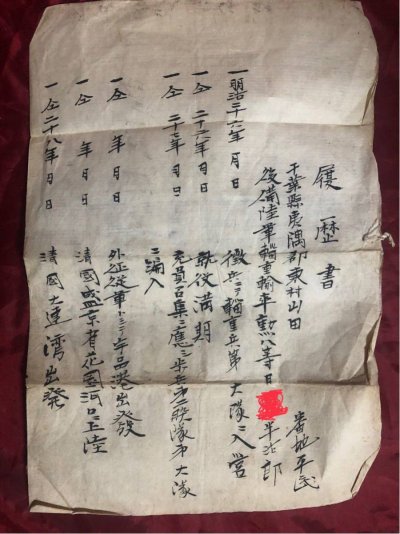 履歴書
千葉縣夷隅郡東村山田 番地平民
後備陸軍輜重輸卒勲八等日 半治郎
一明治二十六年 月 日 徴兵ヲ輜重兵第 大隊ニ入営
一仝 二十六年 月 日 就役満期
一仝 二十七年 月 日 充員召集ニ應シ歩兵第二聯隊第 大隊ニ編入
一仝 年 月 日 外征従軍トシテ宇品港出發
一仝 年 月 日 清國盛京省花園河口上陸
一仝二十八年 月 日 清國大連湾出發